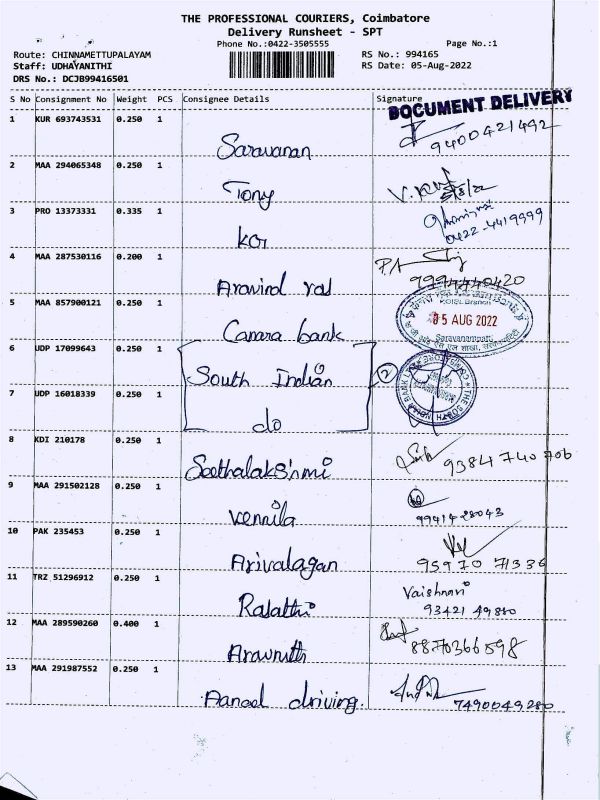 THE PROFESSIONAL COURIERS, Coimbatore
Delivery Runsheet - SPT
Phone No.:0422-3505555
Page No.:1
Route: CHINNAMETTUPALAYAM
RS No.: 994165
Staff: UDHAYANITHI
RS Date: 05-Aug-2022
DRS No.: DCJB99416501
S No Consignment No Weight PCS Consignee Details Signature
DOCUMENT DELIVERY
1 KUR 693743531 0.250 1
Saravanan 9400421492
2 MAA 294065348 0.250 1
Tony
3 PRO 13373331 0.335 1
KGI 0422-4419999
4 MAA 287530116 0.200 1
Aravind raj 9994440420
5 MAA 857900121 0.250 1
05 AUG 2022
Canara bank Saravanampatti
6 UDP 17099643 0.250 1
South Indian 2
7 UDP 16018339 0.250 1
do
8 KDI 210178 0.250 1
Seethalakshmi 9384740706
9 MAA 291502128 0.250 1
Vennila 9941428043
10 PAK 235453 0.250 1
Arivalagan 95970 71336
11 TRZ 51296912 0.250 1
Vaishnavi
Rajathi 93421 49880
12 MAA 289590260 0.400 1
8870366598
13 MAA 291987552 0.250 1
driving 7490049280